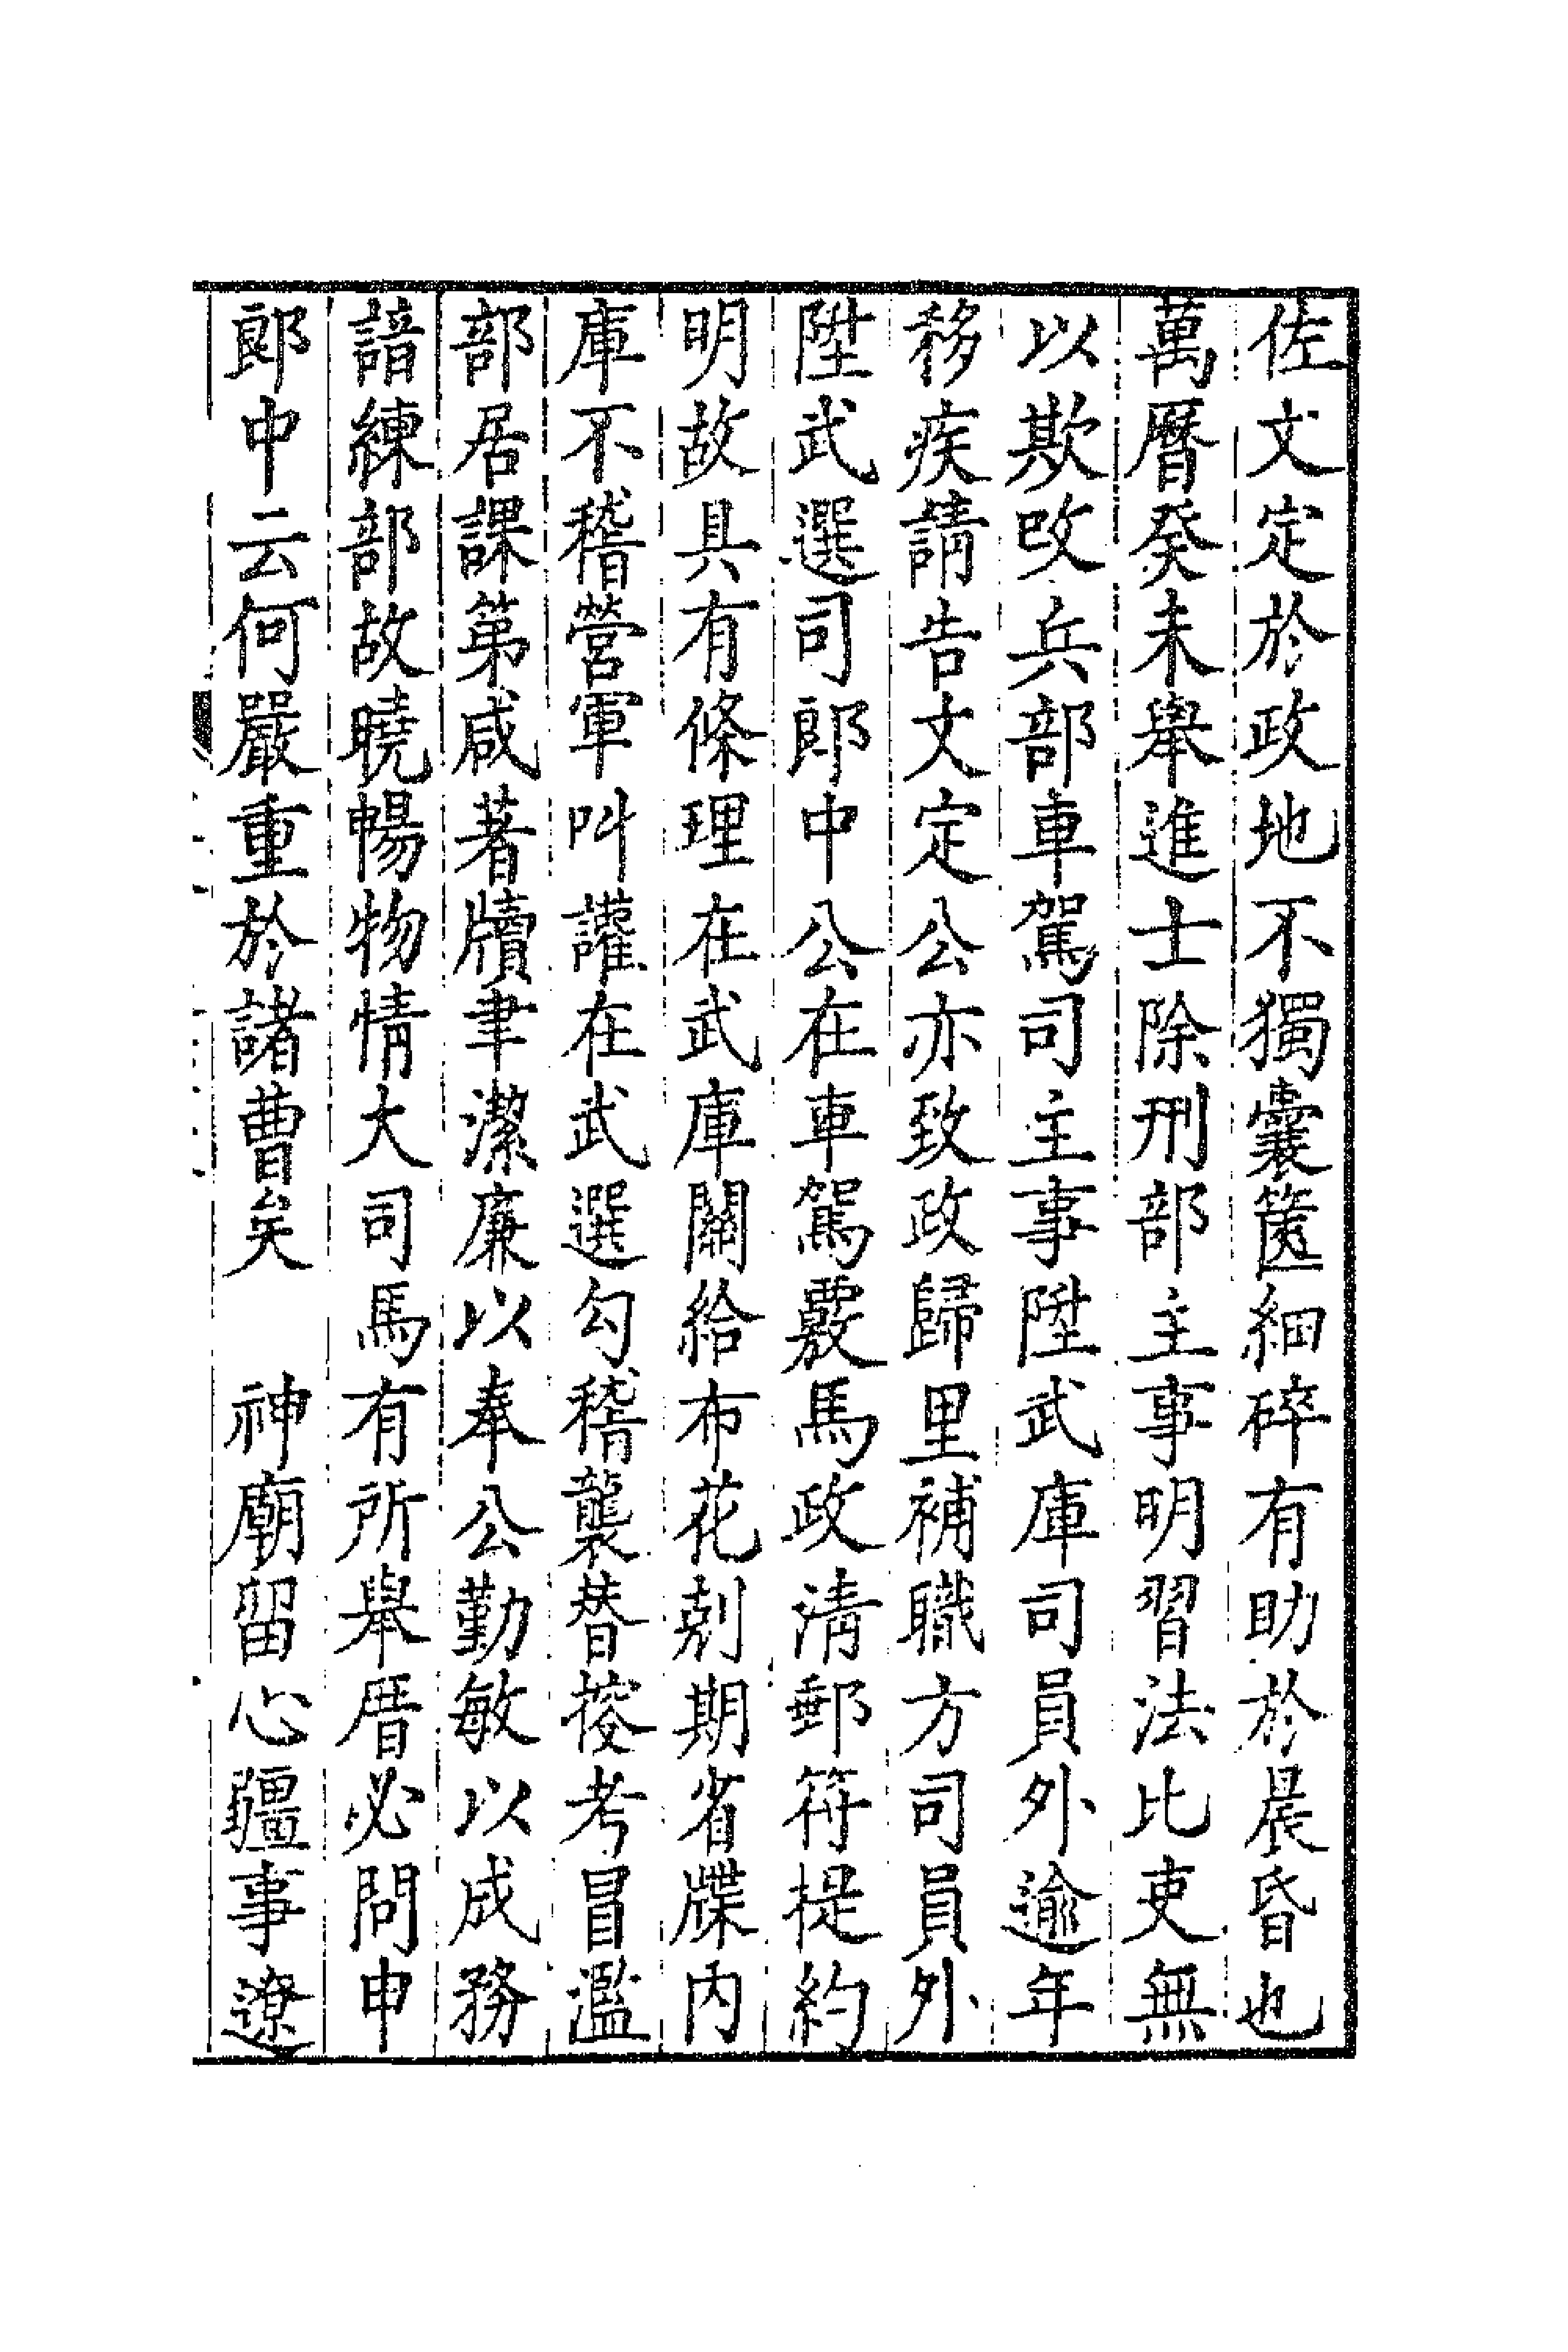 佐文定於政地不獨囊篋細碎有助於晨昏也
萬曆癸未舉進士除刑部主事明習法比吏無
以欺改兵部車駕司主事陞武庫司員外逾年
移疾請告文定公亦致政歸里補職方司員外
陞武選司郎中公在車駕覈馬政清郵符提約
明故具有條理在武庫關給布花刻期省牒內
庫不稽營軍叫讙在武選勾稽襲替按考冒濫
部居課第咸著牘聿潔廉以奉公勤敏以成務
諳練部故曉暢物情大司馬有所舉厝必問申
郎中云何嚴重於諸曹矣　神廟留心疆事遼